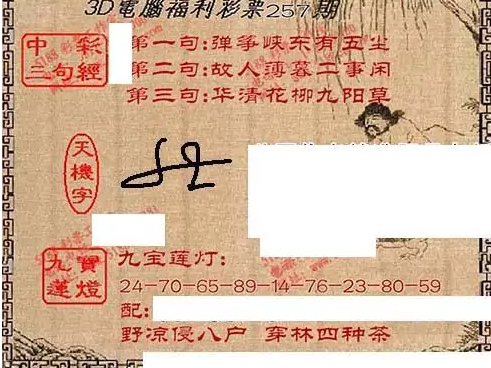 3D電腦福利彩票257期
中彩
三句經
第一句:弹筝峡东有五尘
第二句:故人薄暮二事闲
第三句:华清花柳九阳草
天機字
九寶
蓮燈
九宝莲灯:
24-70-65-89-14-76-23-80-59
配:
野凉侵八户 穿林四种茶